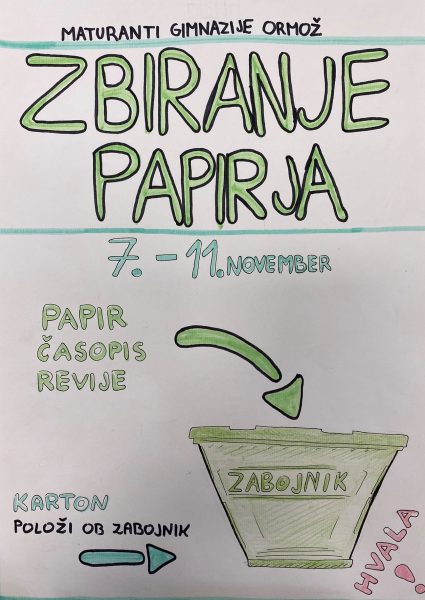 MATURANTI GIMNAZIJE ORMOŽ
ZBIRANJE
PAPIRJA
7. - 11. NOVEMBER
PAPIR
ČASOPIS
REVIJE
ZABOJNIK
KARTON
POLOŽI OB ZABOJNIK
HVALA!